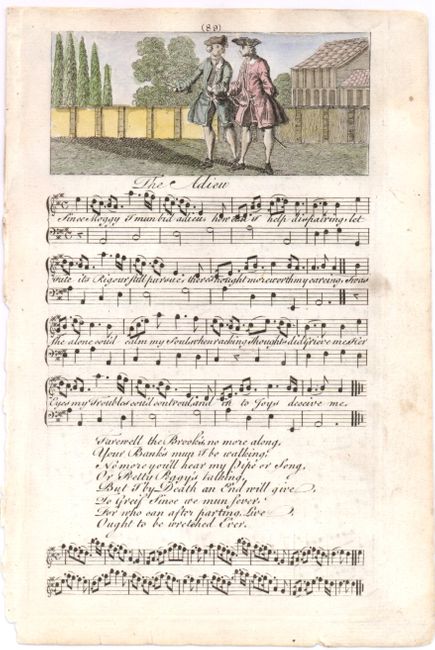 (89)
The Adieu
Since Moggy I mun bid adieu, how can I help dispairing, let
Fate its Rigour still pursue, there's nought more worth my careing, 'twas
she alone could calm my Soul when racking thoughts did grieve me Her
Eyes my Troubles could controul, and in to Joys deceive me.
Farewell the Brooks, no more along,
Your Banks mun I be walking,
No more you'll hear my Pipe or Song,
Or Pretty Peggy's talking,
But I by Death an End will give,
To Greif Since we mun sever,
For who can after parting Live
Ought to be wretched Ever.